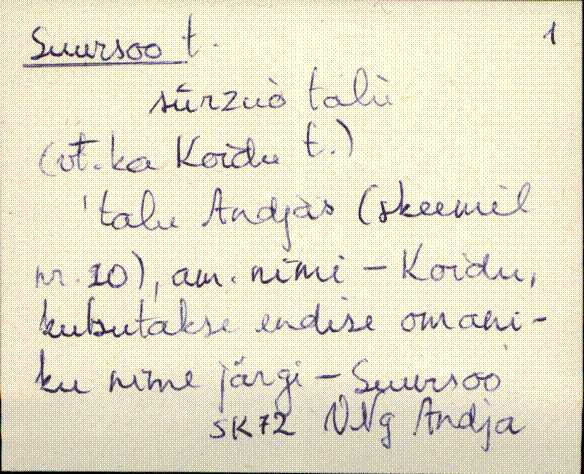 Suursoo t. 1
sūrzuò talù
(vt. ka Koidu t.)
'talu Andjas (skeemil
nr. 20), am. nimi – Koidu,
kutsutakse endise omani-
ku nime järgi – Suursoo
SK72 VNg Andja